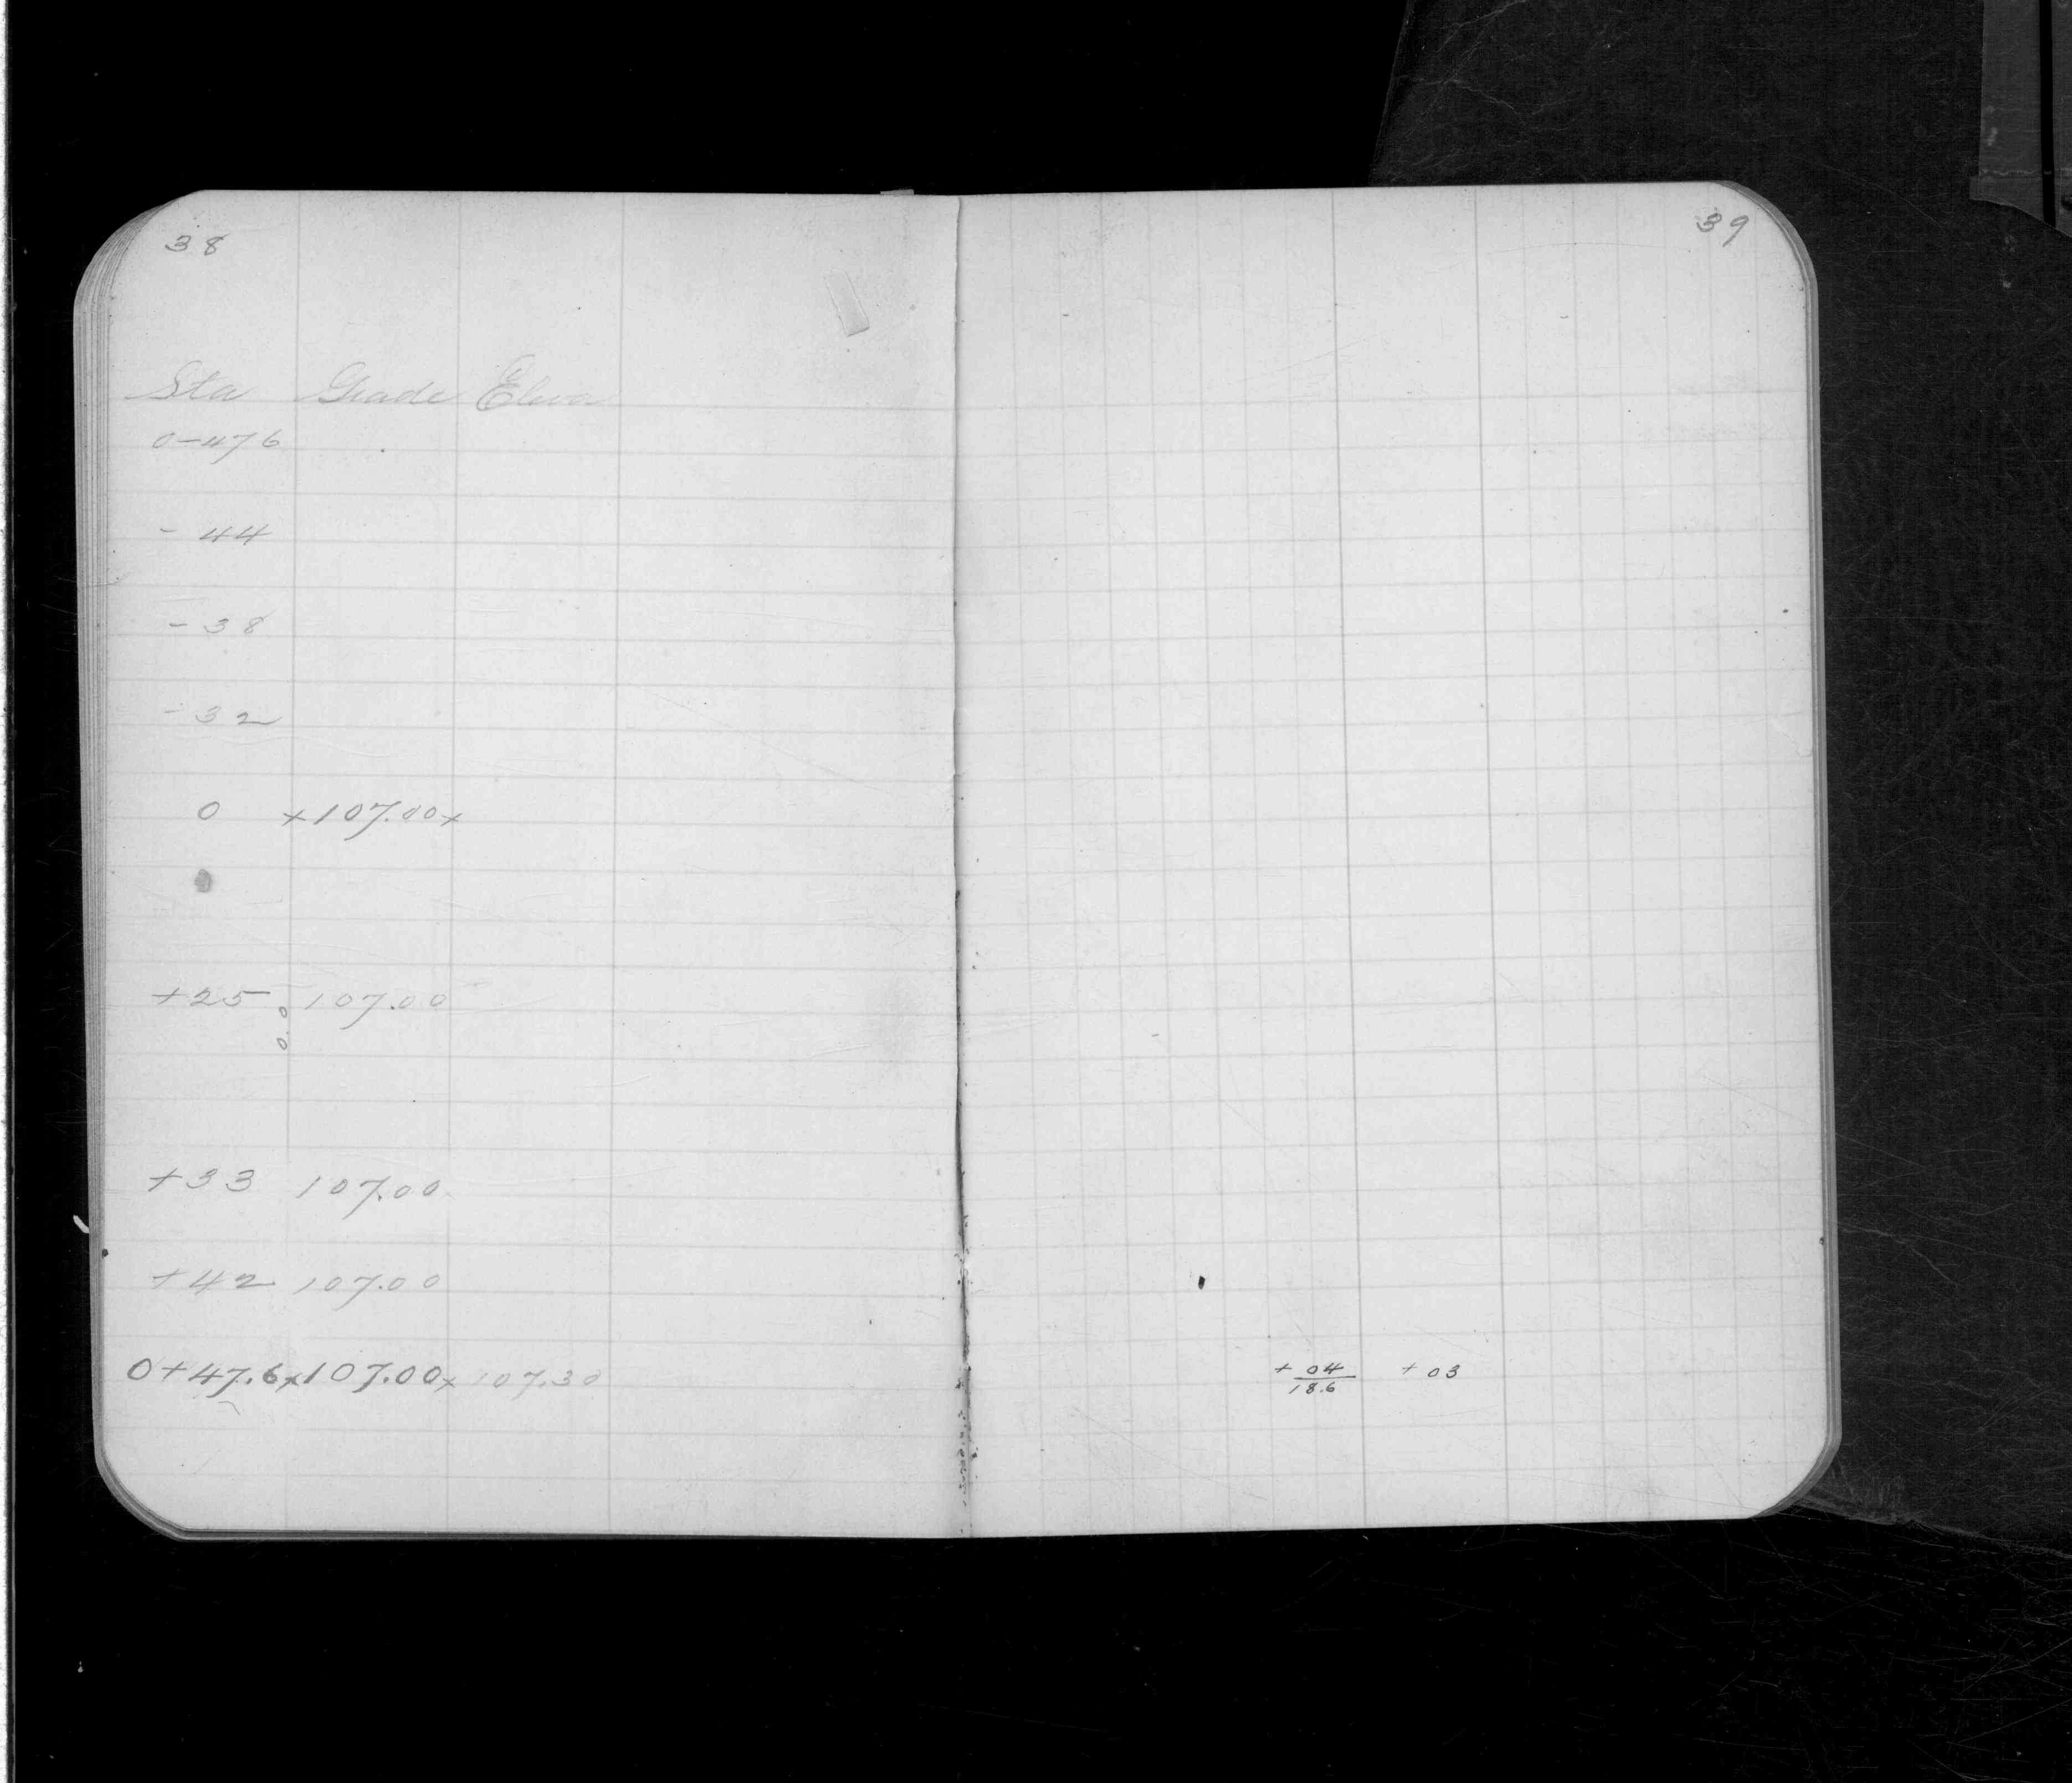 38
Sta Grade Eleva
0-476
- 44
- 38
- 32
0 x107.00x
+25 107.00
0.0
+33 107.00
+42 107.00
0+47.6x107.00x 107.30
39
+ 04 + 03
18.6